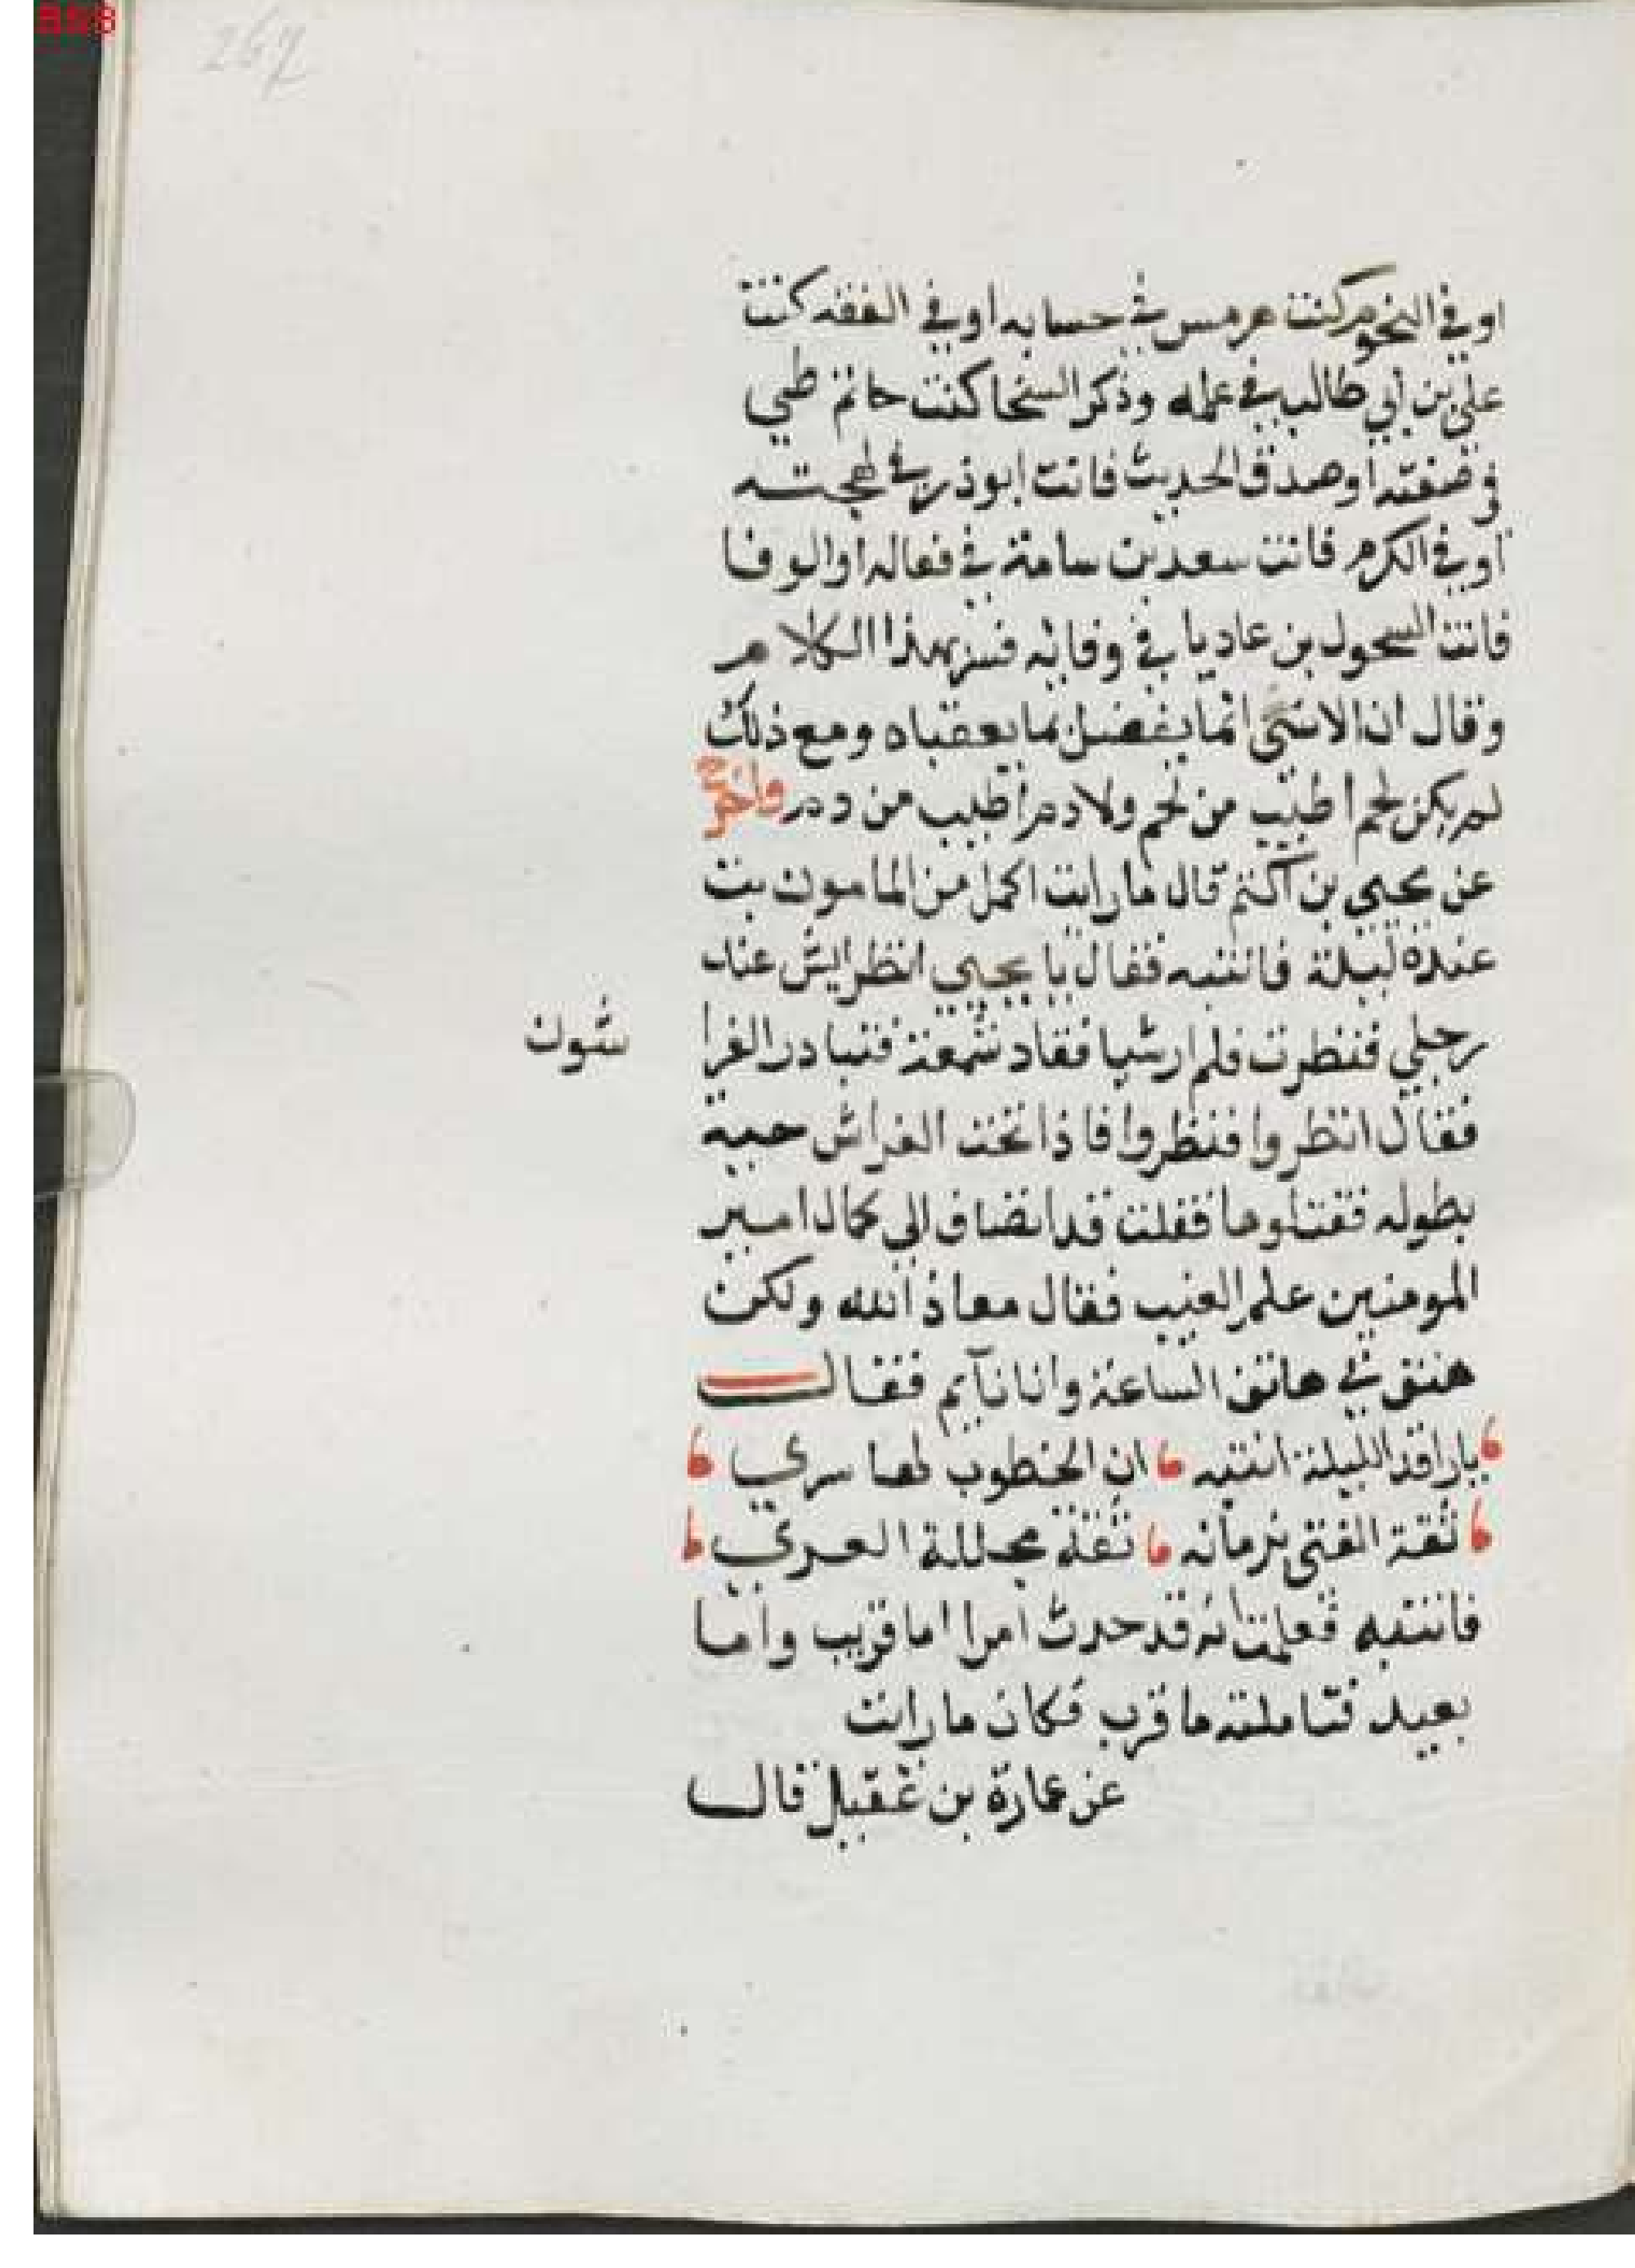 267
او في النجوم كنت هرمس في حسابه او في الفقه كنت
علي بن ابي طالب في علمه وذكر السخا كنت حاتم طي
في صفته او صدق الحديث فانت ابوذر في لهجته
او في الكرم فانت سعد بن سامة في فعاله او الوفا
فانت السحول بن عاديا في وفائه فسر بهذا الكلام
وقال ان الانسى انما يفضل بما يعقباه ومع ذلك
لم يكن لحم اطيب من لحم ولا دم اطيب من دم واخرج
عن يحيى بن اكثم قال ما رايت اكمل من المامون بت
عنده ليلة فانتبه فقال يا يحيي انظر ايش عند
رجلي فنظرت فلم ار شيا فقاد شمعة فتبادر الفرا
شون
فقال انظروا فنظروا فاذا تحت الفراش حية
بطوله فقتلوها فقلت قد انضاف الي كمال امير
المومنين علم الغيب فقال معاذ الله ولكن
هتف في هاتف الساعة وانا نآيم فقال
يا راقد الليلة انتبه ان الخطوب لها سري
ثقة الفتى بزمانه ثقة محللة العري
فانتبه فعلمت انه قد حدث امرا اما قريب واما
بعيد فتاملته ما قرب فكان ما رايت
عن عمارة بن عقيل قال